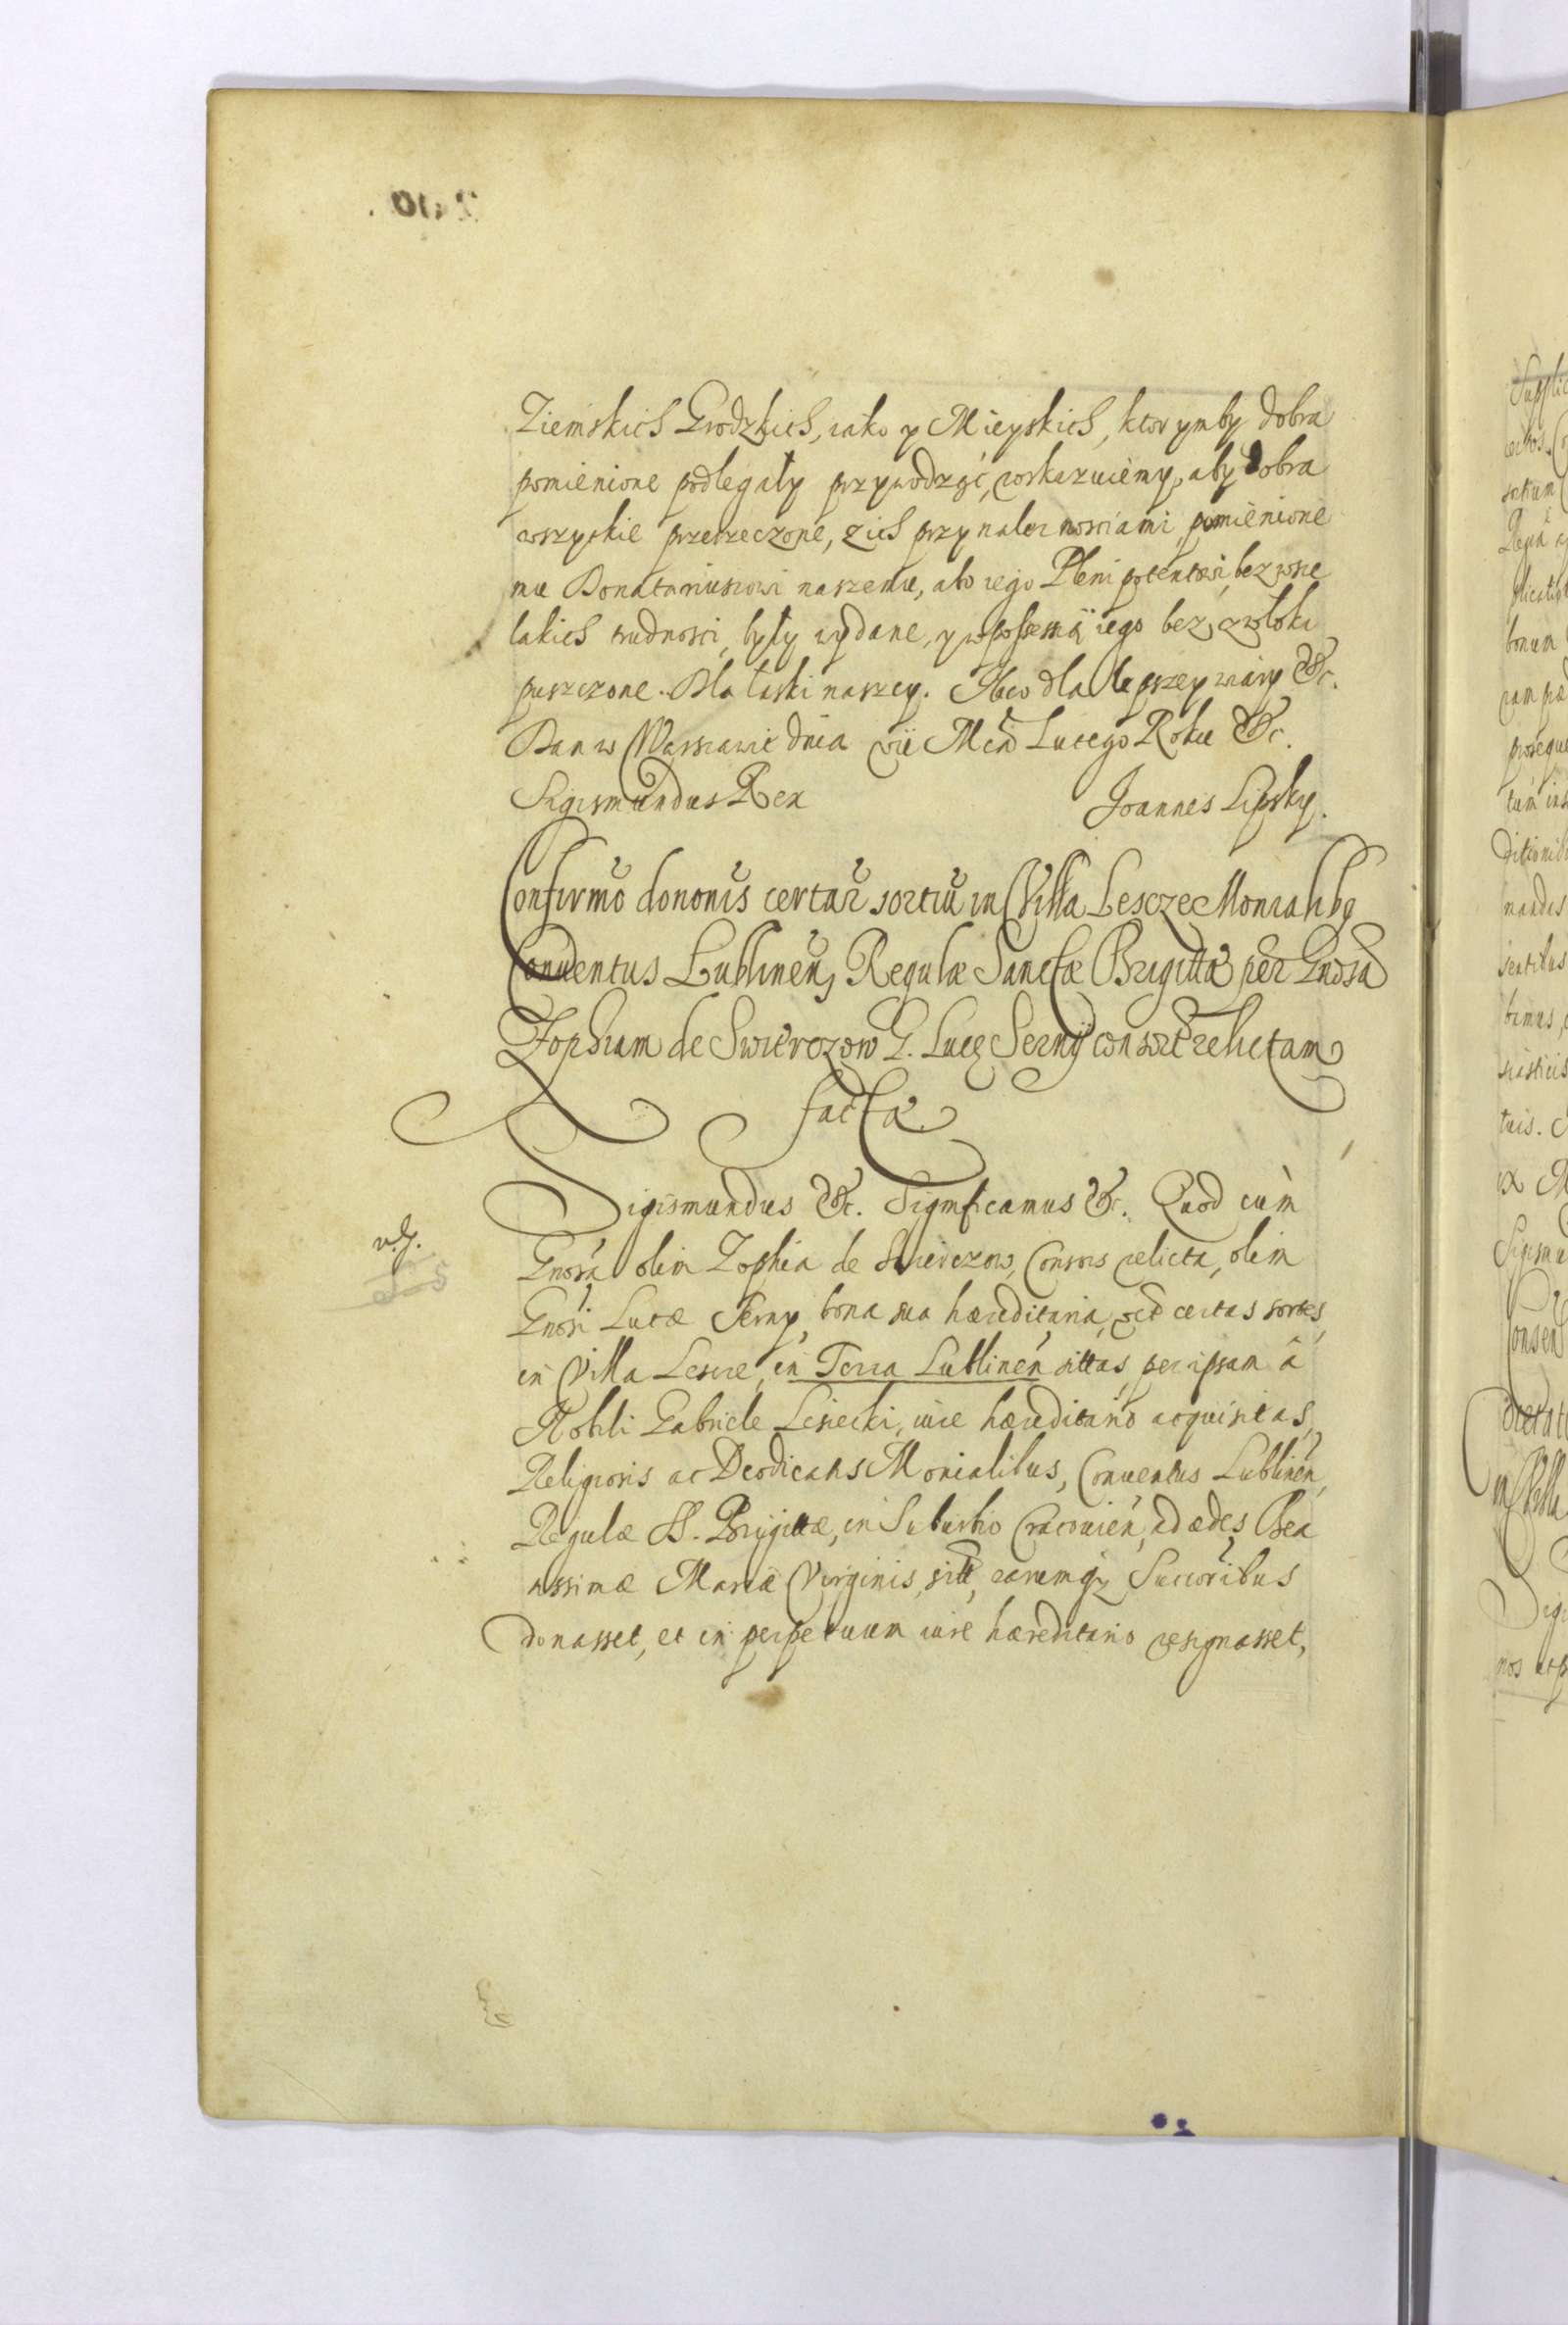 Ziemskich Grodzkich, iako y Mieyskich, ktorymby dobra
pomienione podlegały przywodzić, roskazuiemy, aby dobra
wszyskie przerzeczone, z ich przynaleznosciami, pomienione
mu Donatariusowi naszemu, abo iego Plenipotentowi, bez wsze
lakich trudnosci, były wydane, y w possessią iego bez zwłoki
puszczone. Dla łaski naszey. Ibco dla lepszey wiary &c.
Dan w Warszawie dnia vii Men̄ Lutego Roku &c.
Sigismundus Rex Joannes Lipsky.
Confirmō donōnis certar̄ sortiū in Villa Lescze Monialibq
Conventus Lublinen̄ Regulæ Sanctæ Brigittæ per Gnosā
Zophiam de Swierczow G. Lucę Serny consort̄ relictam
facta.
Sigismundus &c. Significamus &c. Quod cùm
Gnosa olim Zophia de Swierczow, Consors relicta, olim
Gnosi Lucæ Serny, bona sua hæreditaria, vid certas sortes,
in Villa Lescze, in Terra Lublinen̄ sittas, per ipsam à
Nobili Gabriele Lesiecki, iure hæreditario acquisitas,
Religiosis ac Deodicatis Monialibus, Conventus Lublinen̄,
Regulæ S. Brygittæ, in Suburbio Cracovien̄, ad ædes Bea
tissimæ Mariæ Virginis, sitt, earumq; Succoribus
donasset, et in perpetuum iure hæreditario resignasset,